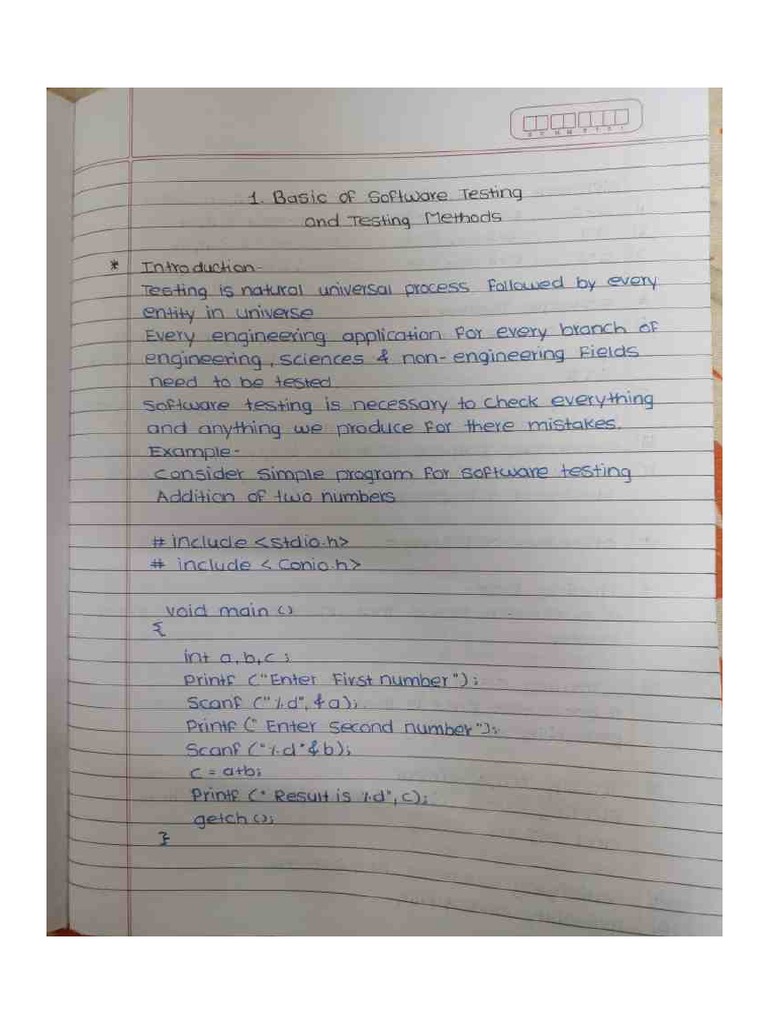 1. Basic of Software Testing
and Testing Methods
* Introduction-
Testing is natural universal process followed by every
entity in universe
Every engineering application for every branch of
engineering, sciences & non-engineering fields
need to be tested.
Software testing is necessary to check everything
and anything we produce for there mistakes.
Example-
Consider simple program for software testing
Addition of two numbers
# include <stdio.h>
# include <Conio.h>
void main ()
{
int a,b,c ;
Printf ("Enter First number");
Scanf ("%d", &a);
Printf (" Enter second number");
Scanf ("%d" &b);
c = a+b;
Printf (" Result is %d", c);
getch ();
}